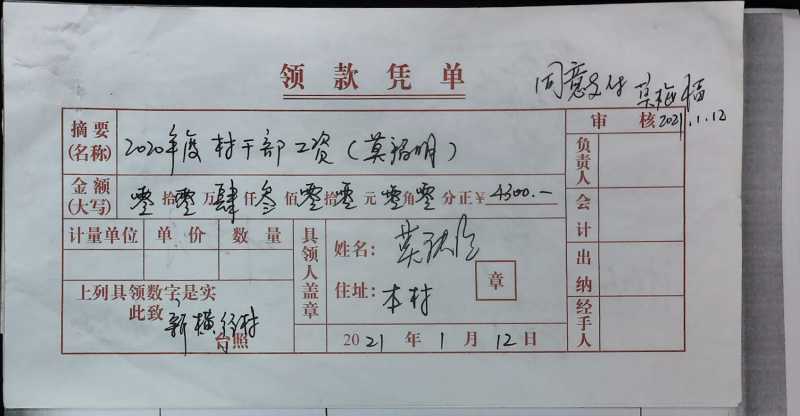 领款凭单
同意支付 莫
2021.1.12
摘要(名称) 2020年度村干部工资(莫福明)
审核
金额(大写) 零拾零万肆仟叁佰零拾零元零角零分正¥4300.—
负责人
会计
出纳
经手人
计量单位 单价 数量
具领人盖章
姓名: 莫
住址: 本村
章
上列具领数字是实
此致 新横行村
台照
2021年1月12日